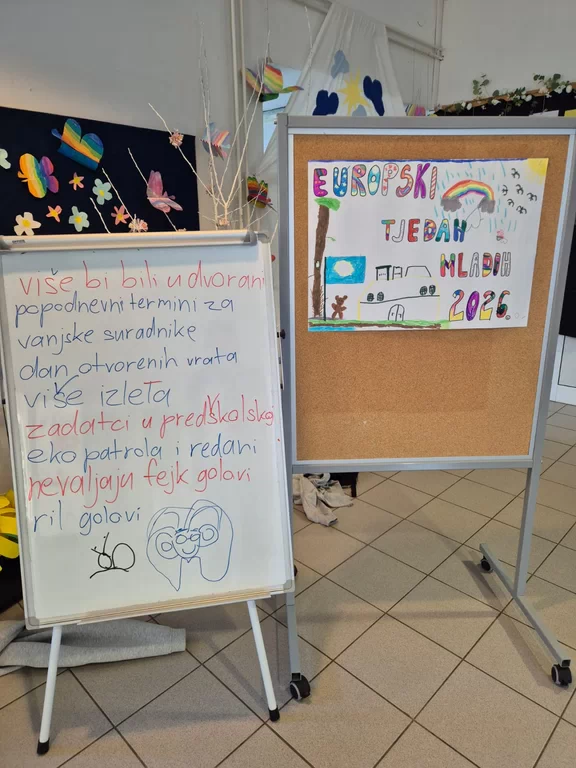 više bi bili u dvorani
popodnevni termini za
vanjske suradnike
dan otvorenih vrata
više izleta
zadatci u predškolskoj
eko patrola i redani
nevaljaju fejk golovi
ril golovi
EUROPSKI
TJEDAN
MLADIH
2026.